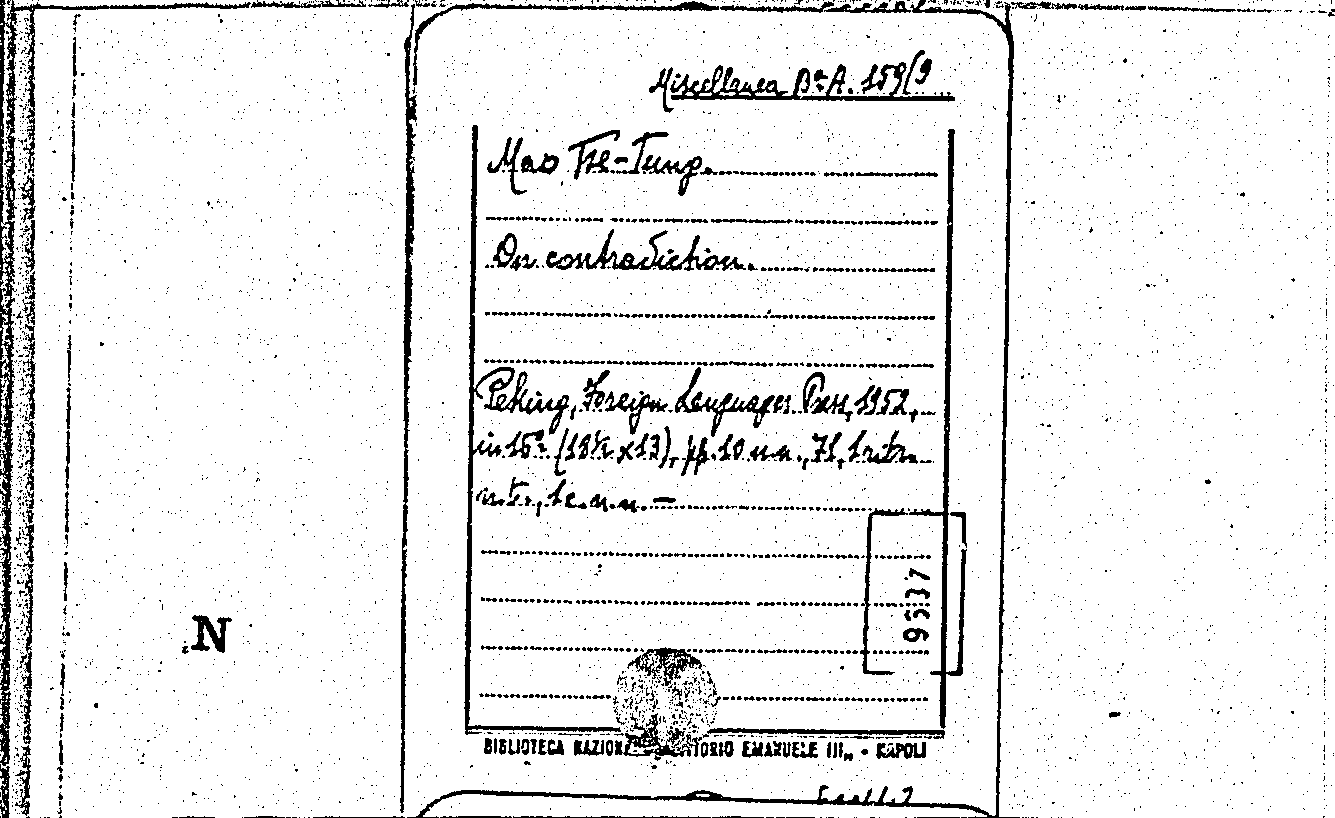 Miscellanea Bta A. 159/9
Mao Tse-Tung.
On contradiction.
Peking, Foreign Languages Press, 1952,
in 16° (18½ x 13), pp. 10 n.n., 71, 1 ritr.
n.t., 1 c.n.n. —
9537
N
BIBLIOTECA NAZIONALE VITTORIO EMANUELE III„ - NAPOLI